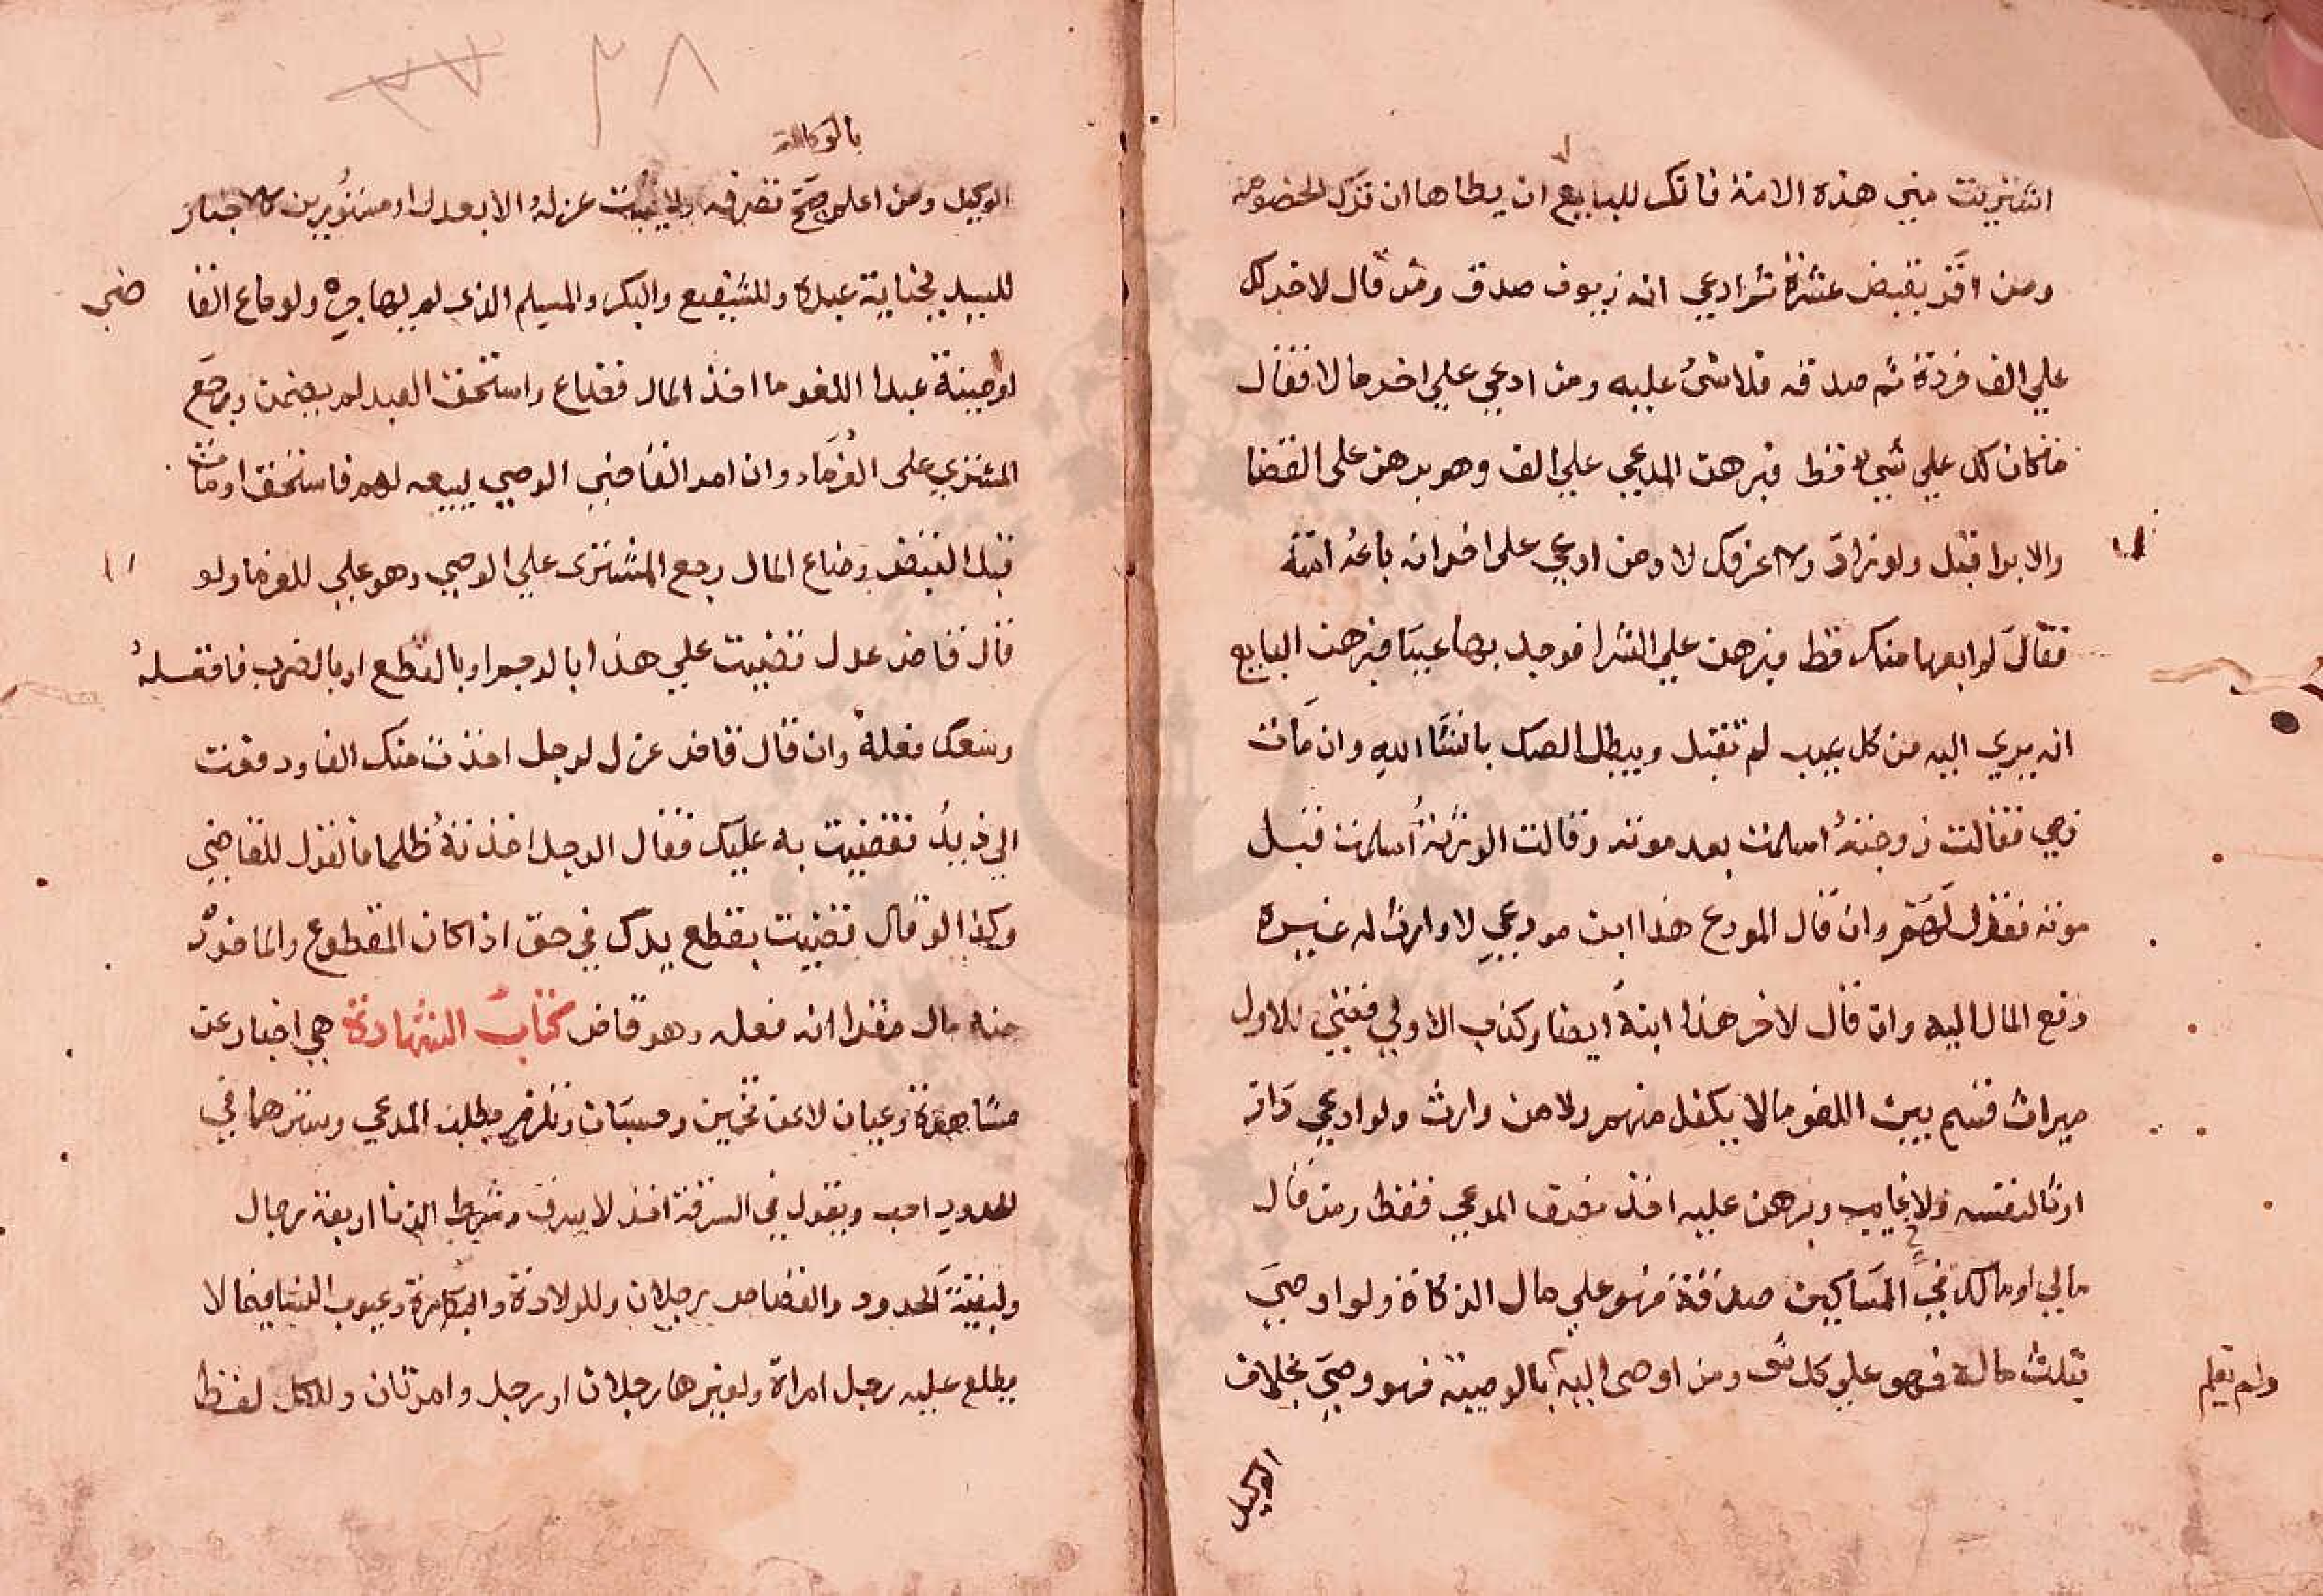 اشتريت مني هذه الامة فانكر للبايع ان يطاها ان ترك الخصومة
ومن اقر بقبض عشرة ثم ادعي انه زيوف صدق ومن قال لاخر لك
علي الف فرده ثم صدقه فلا شئ عليه ومن ادعي علي اخر مالا فقال
ما كان لك علي شئ قط فبرهن المدعي علي الف وهو برهن على القضا
والابرا قبل ولو زاد ولا اعرفك لا ومن ادعي على اخر انه باعه امته
فقال لم ابعها منك قط فبرهن علي الشرا فوجد بها عيبا فبرهن البايع
انه بري اليه من كل عيب لم تقبل ويبطل الصك بانشا الله وان مات
ذمي فقالت زوجته اسلمت بعد موته وقالت الورثة اسلمت قبل
موته فالقول لهم وان قال المودع هذا ابن مودعي لا وارث له غيره
دفع المال اليه وان قال لاخر هذا ابنه ايضا وكذب الاول قضي للاول
ميراث قسم بين الغرما لا يكفل منهم ولا من وارث ولو ادعي دارا
ارثا لنفسه ولاخ غايب وبرهن عليه اخذ نصف المدعي فقط ومن قال
مالي او ما املك في المساكين صدقة فهو علي مال الزكاة ولو اوصي
بثلث ماله فهو علي كل شئ ومن اوصى اليه بالوصية فهو وصي بخلاف
ولم يعلم
الوكيل
٣٨
بالوكالة
الوكيل ومن اعلم صح تصرفه ولا يثبت عزله الا بعدل او مستورين كالاخبار
للسيد بجناية عبده وللشفيع والبكر والمسلم الذي لم يهاجر ولو باع القا
ضي
او امينه عبدا للغرما اخذ المال فضاع واستحق العبد لم يضمن ورجع
المشتري على الغرما وان امر القاضي الوصي ببيعه لهم فاستحق او مات
قبل القبض وضاع المال رجع المشتري علي الوصي وهو علي الغرما ولو
قال قاض عدل قضيت علي هذا بالرجم او بالقطع او بالضرب فافعله
وسعك فعله وان قال قاض عزل لرجل اخذت منك الفا ودفعت
الي زيد قضيت به عليك فقال الرجل اخذته ظلما فالقول للقاضي
وكذا لو قال قضيت بقطع يدك في حق اذا كان المقطوع والماخوذ
منه مال مقرا انه فعله وهو قاض كتاب الشهادة هي اخبار عن
مشاهدة وعيان لا عن تخمين وحسبان وتلزم بطلب المدعي وسترها في
الحدود احب ويقول في السرقة اخذ لا سرق وشرط للزنا اربعة رجال
ولبقية الحدود والقصاص رجلان وللولادة والبكارة وعيوب النسا فيما لا
يطلع عليه رجل امراة ولغيرها رجلان او رجل وامرتان وللكل لفظ